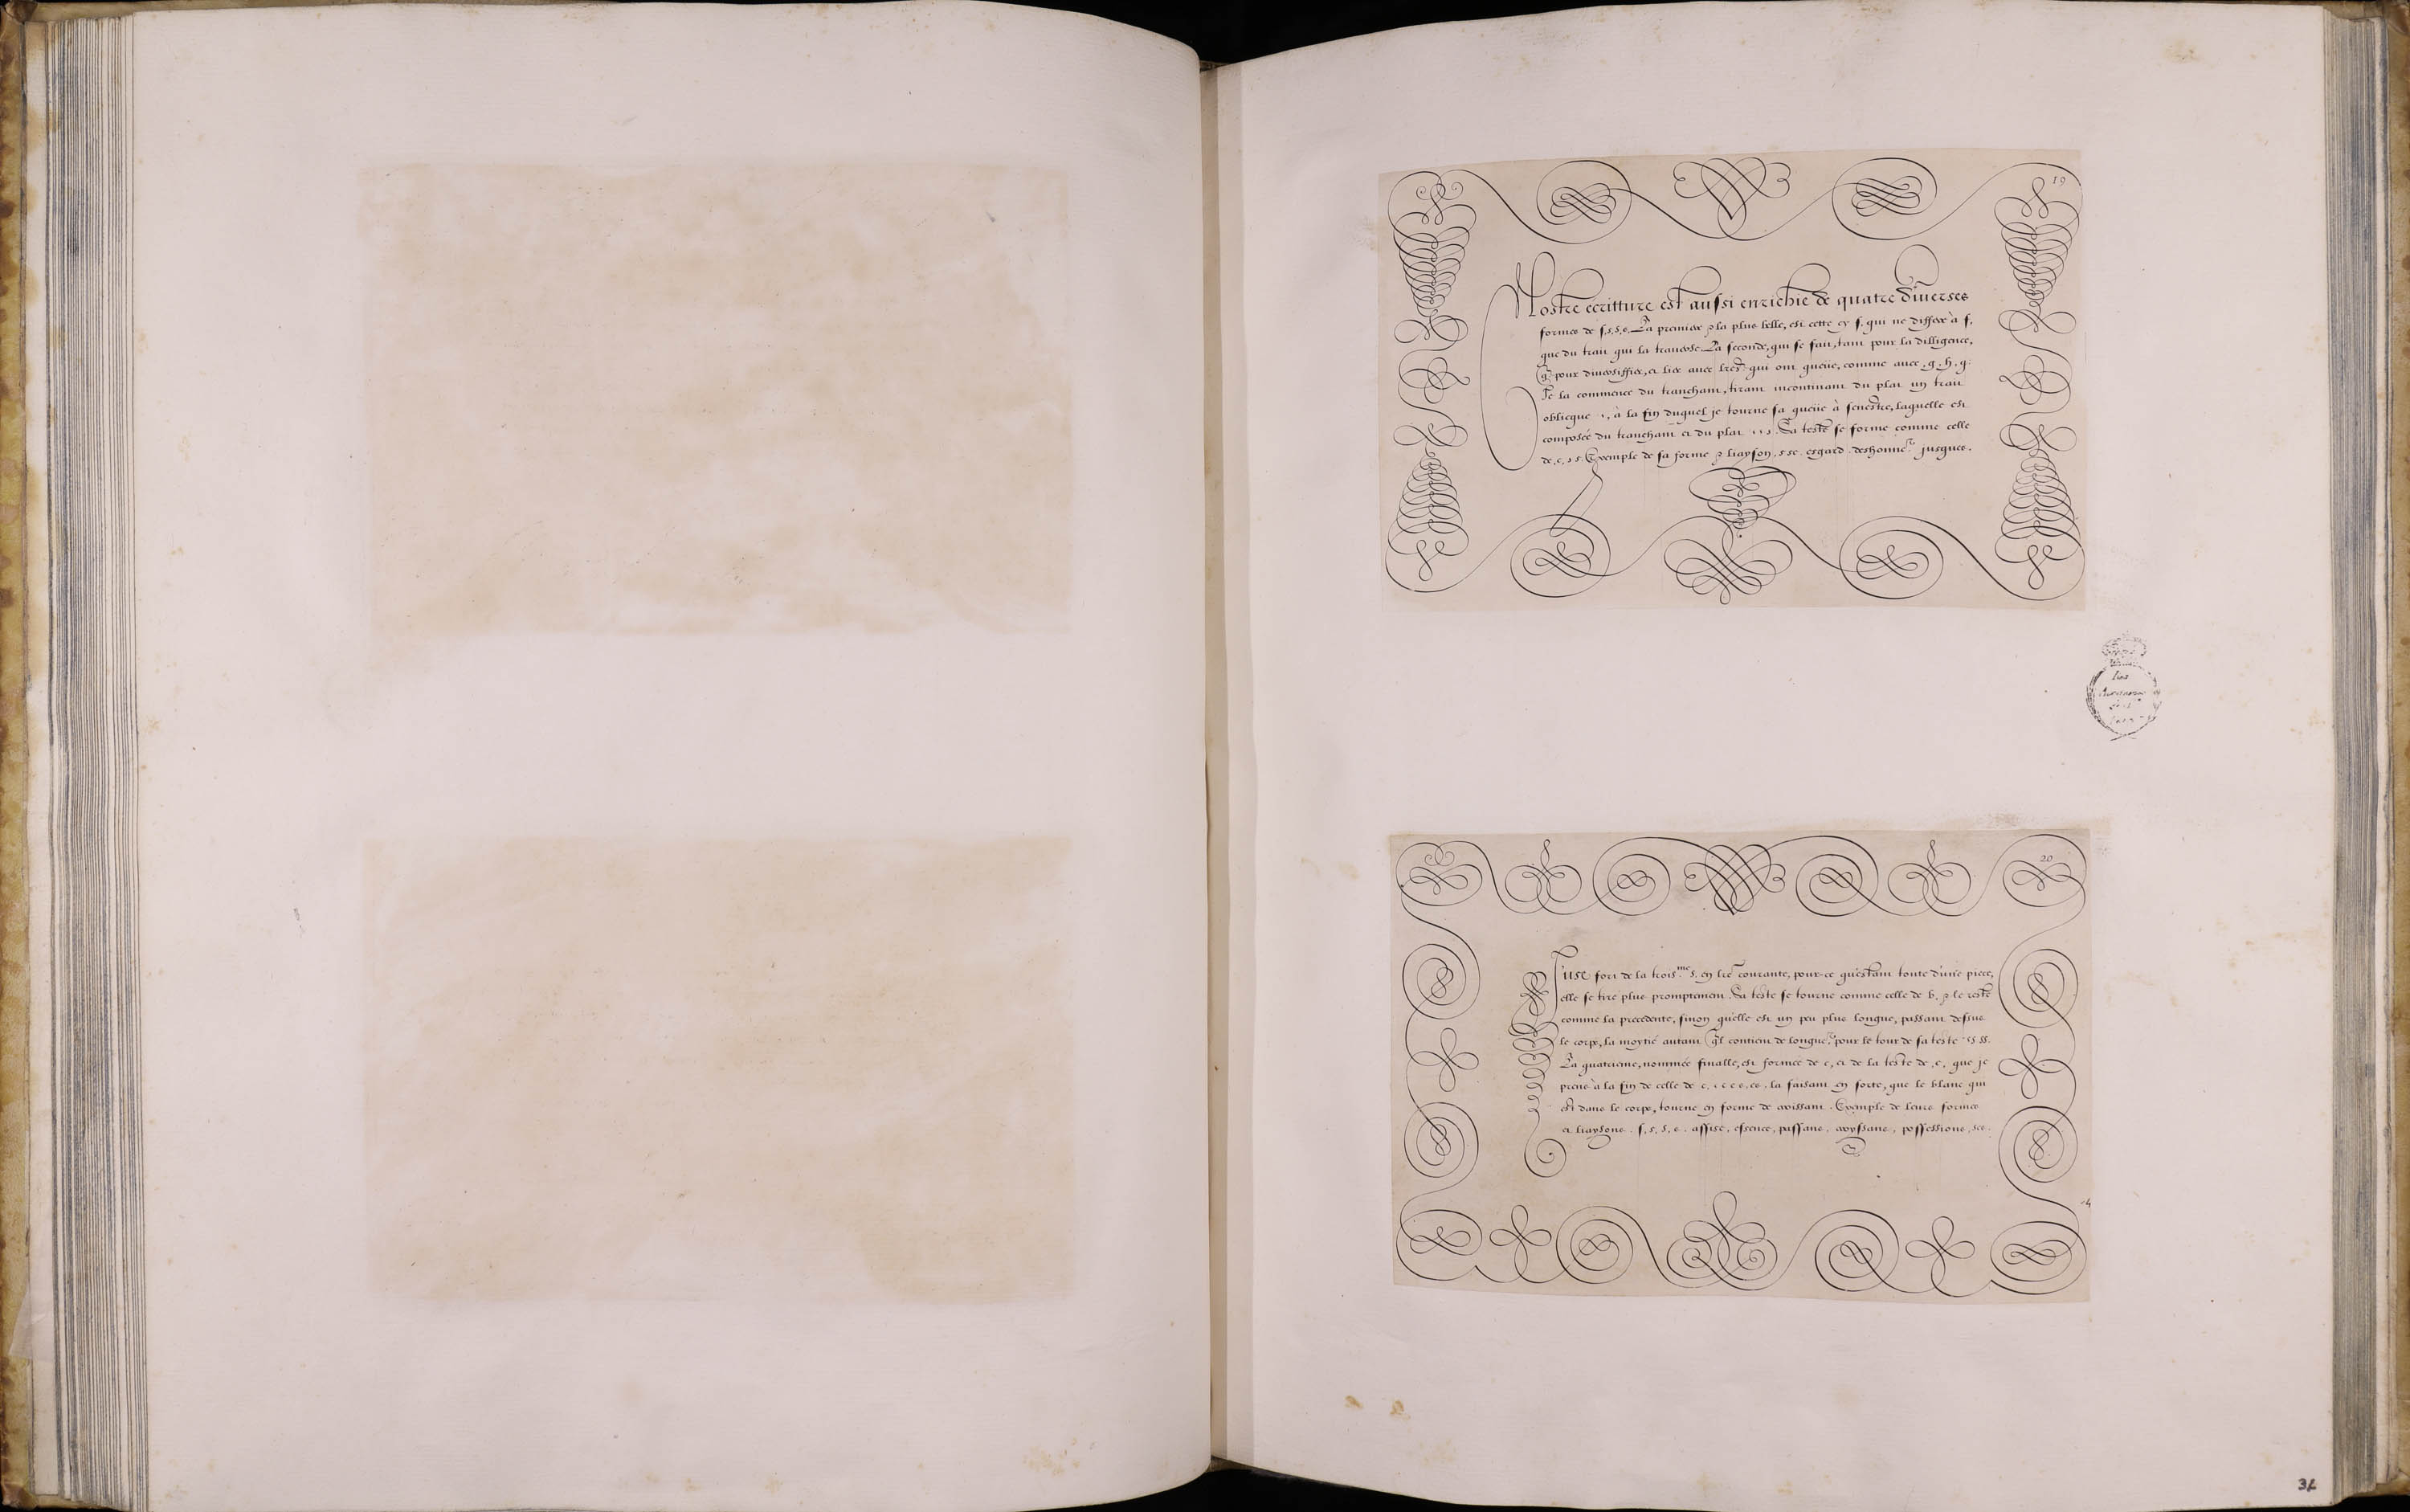 19
Nostre ecritture est aussi enrichie de quatre diuerses
formes de ſ, s, s, s. La premiere & la plus belle, est cette cy ſ, qui ne differe à f,
que du trait qui la trauerse. La seconde, qui se fait, tant pour la dilligence,
q̃ pour diuersiffier, et lier auec lrẽs qui ont queüe, comme auec, g, h, q.
Je la commence du tranchant, tirant incontinant du plat un trait
oblicque ı, à la fin duquel je tourne sa queüe à senestre, laquelle est
composée du tranchant et du plat. Sa teste se forme comme celle
de, c, s s. Exemple de sa forme & liayson, esgard. deshonneᵗ. jusques.
20
J'use fort de la troisᵐᵉ s, en lrẽ courante, pour-ce qu'estant toute d'une piece,
elle se tire plus promptement. Sa teste se tourne comme celle de b, & le reste
comme la precedente, sinon qu'elle est un peu plus longue, passant dessus
le corps, la moytié autant q̃l contient de longueʳ, pour le tour de sa teste ss ss.
La quatrieme, nommée finalle, est formée de c, et de la teste de, e, que je
prens à la fin de celle de c, la faisant en sorte, que le blanc qui
est dans le corps, tourne en forme de croissant. Exemple de leurs formes
et liaysons. ſ, s, s, s. assise, essence, passans, croyssans, possessions,
4